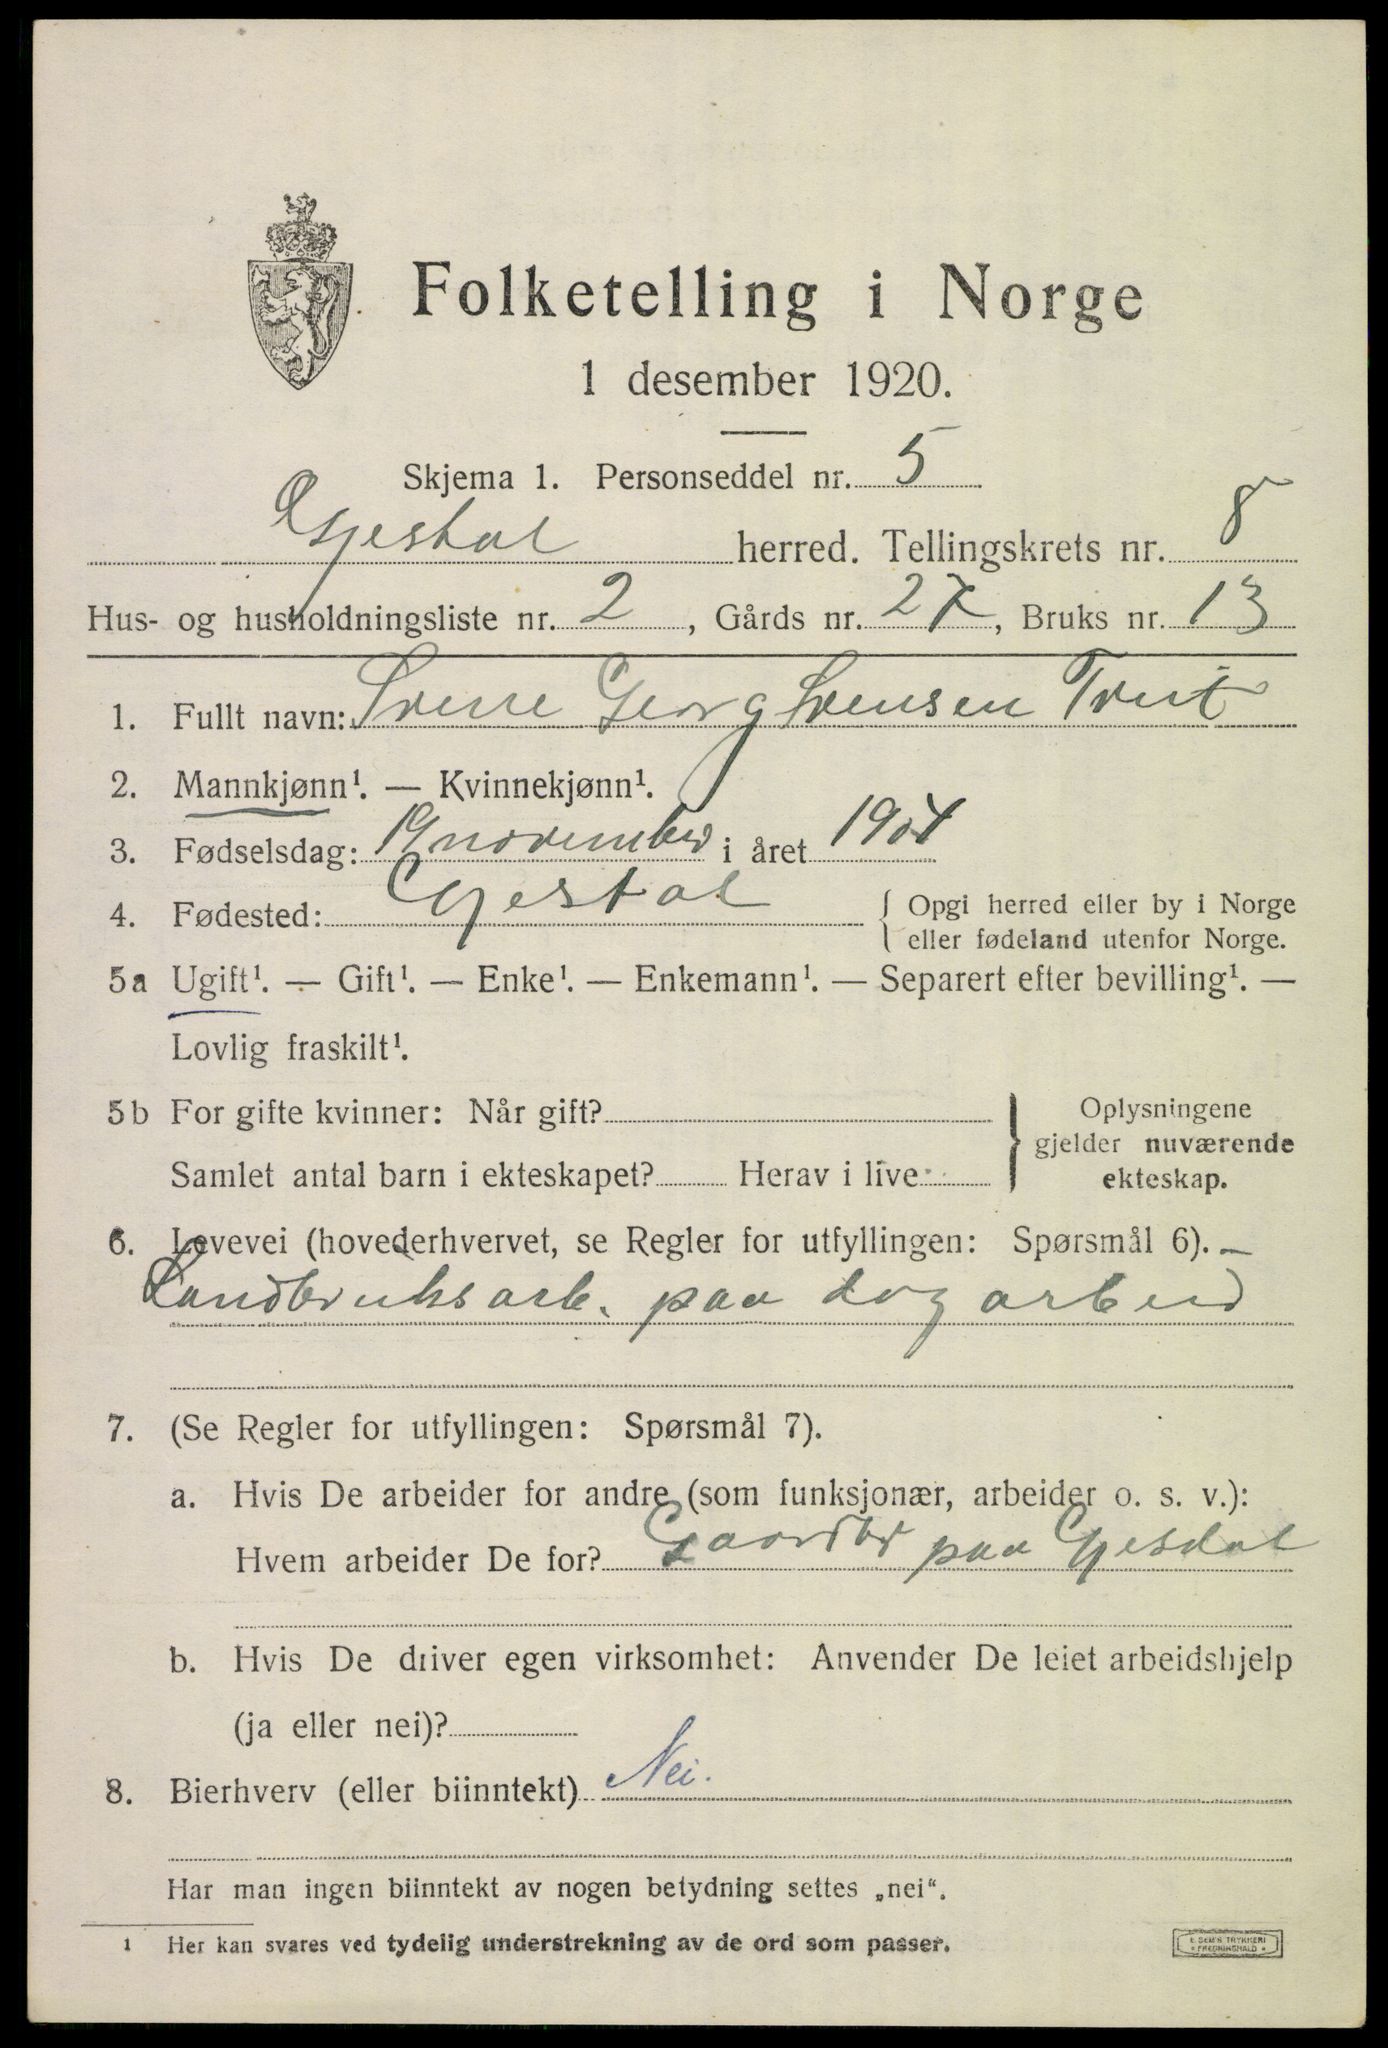 Folketelling i Norge
1 desember 1920.
Skjema 1. Personseddel nr. 5
Gjestal herred. Tellingskrets nr. 8
Hus- og husholdningsliste nr. 2, Gårds nr. 27, Bruks nr. 13
1. Fullt navn: Sverre Georg Svensen Tveit
2. Mannkjønn¹. — Kvinnekjønn¹.
3. Fødselsdag: 19 november i året 1904
4. Fødested: Gjestal { Opgi herred eller by i Norge
eller fødeland utenfor Norge.
5a Ugift¹. — Gift¹. — Enke¹. — Enkemann¹. — Separert efter bevilling¹. —
Lovlig fraskilt¹.
5b For gifte kvinner: Når gift? } Oplysningene
gjelder nuværende
Samlet antal barn i ekteskapet? Herav i live ekteskap.
6. Levevei (hovederhvervet, se Regler for utfyllingen: Spørsmål 6). —
Landbruksarb. paa dagarbeid
7. (Se Regler for utfyllingen: Spørsmål 7).
a. Hvis De arbeider for andre (som funksjonær, arbeider o. s. v.):
Hvem arbeider De for? paa Gjesdal
b. Hvis De driver egen virksomhet: Anvender De leiet arbeidshjelp
(ja eller nei)?
8. Bierhverv (eller biinntekt) Nei.
Har man ingen biinntekt av nogen betydning settes „nei“.
1 Her kan svares ved tydelig understrekning av de ord som passer.
E. SEM'S TRYKKERI
FREDRIKSHALD